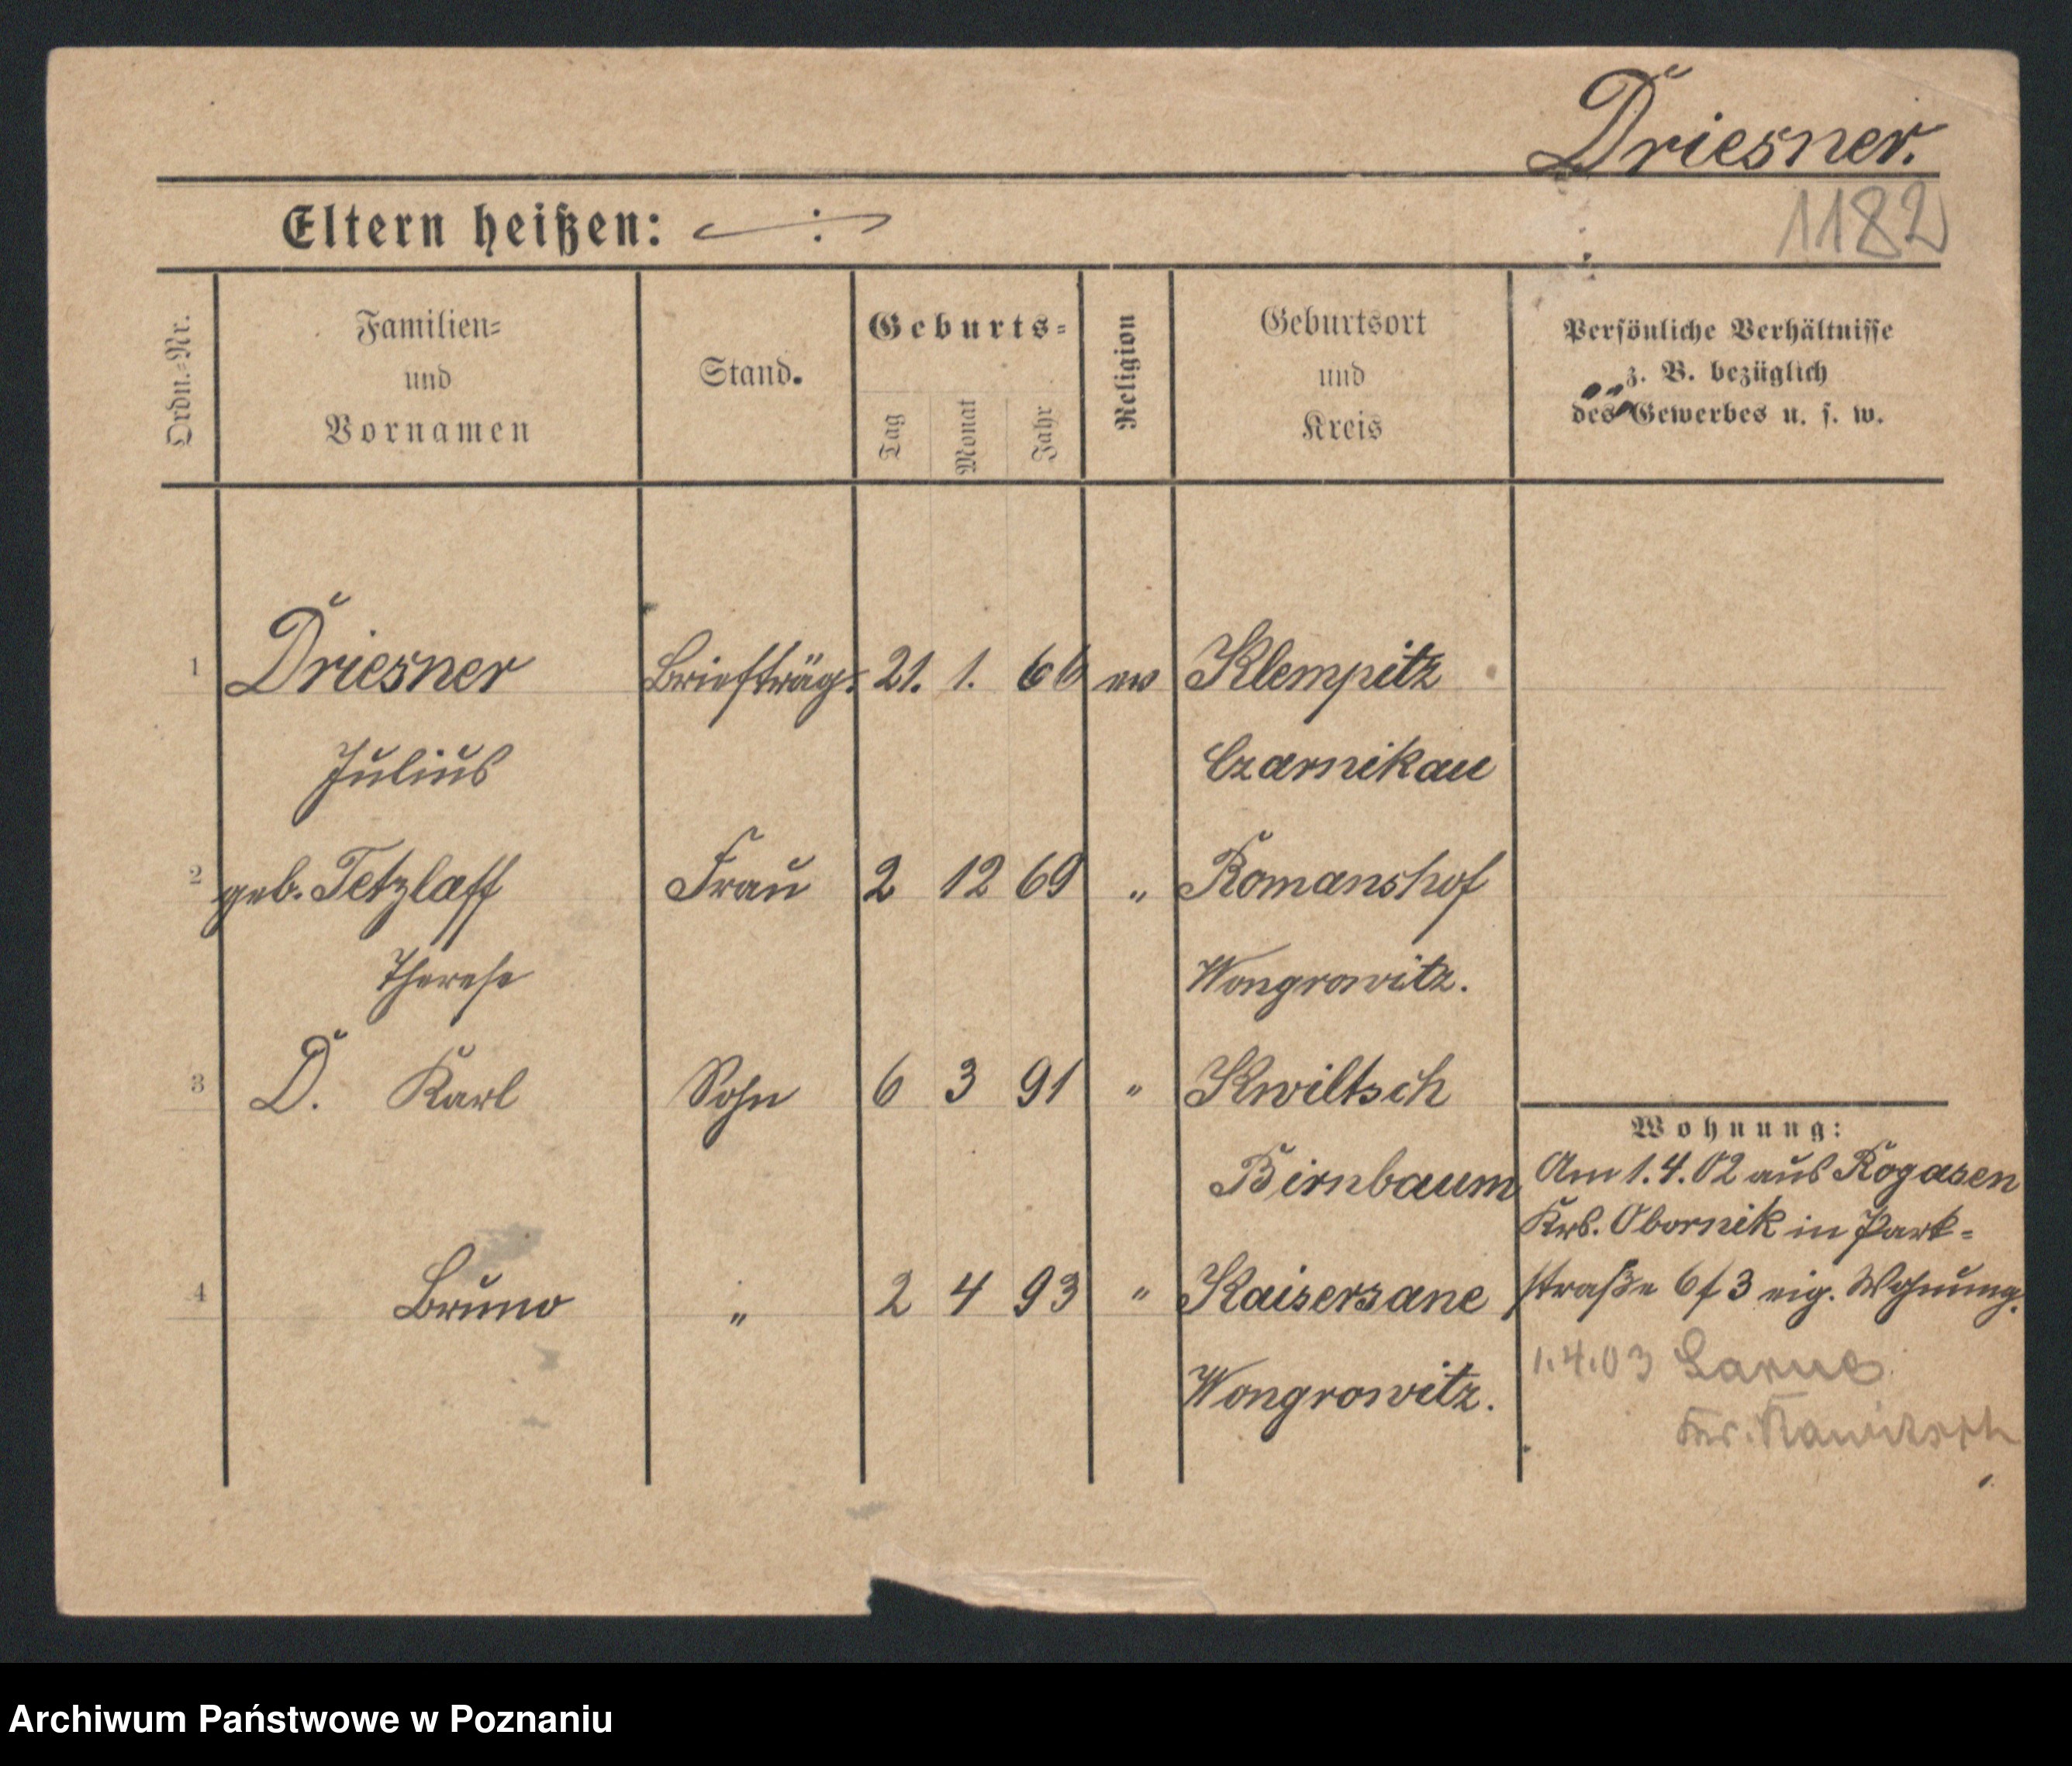 Driesner.
1182
Eltern heißen: ÷
Ordn.=Nr.
Familien=
und
Vornamen
Stand.
Geburts=
Tag Monat Jahr
Religion
Geburtsort
und
Kreis
Persönliche Verhältnisse
z. B. bezüglich
des Gewerbes u. s. w.
1 Driesner Briefträg. 21. 1. 66 ev Klempitz
Julius Czarnikau
2 geb. Tetzlaff Frau 2 12 69 „ Romanshof
Therese Wongrowitz.
3 D. Karl Sohn 6 3 91 „ Kwiltsch
Birnbaum
4 Bruno „ 2 4 93 „ Kaisersaue
Wongrowitz.
Wohnung:
Am 1.4.02 aus Rogasen
Krs. Obornik in Park=
straße 6 f 3 eig. Wohnung.
1.4.03
Kr. Rawitsch
Archiwum Państwowe w Poznaniu